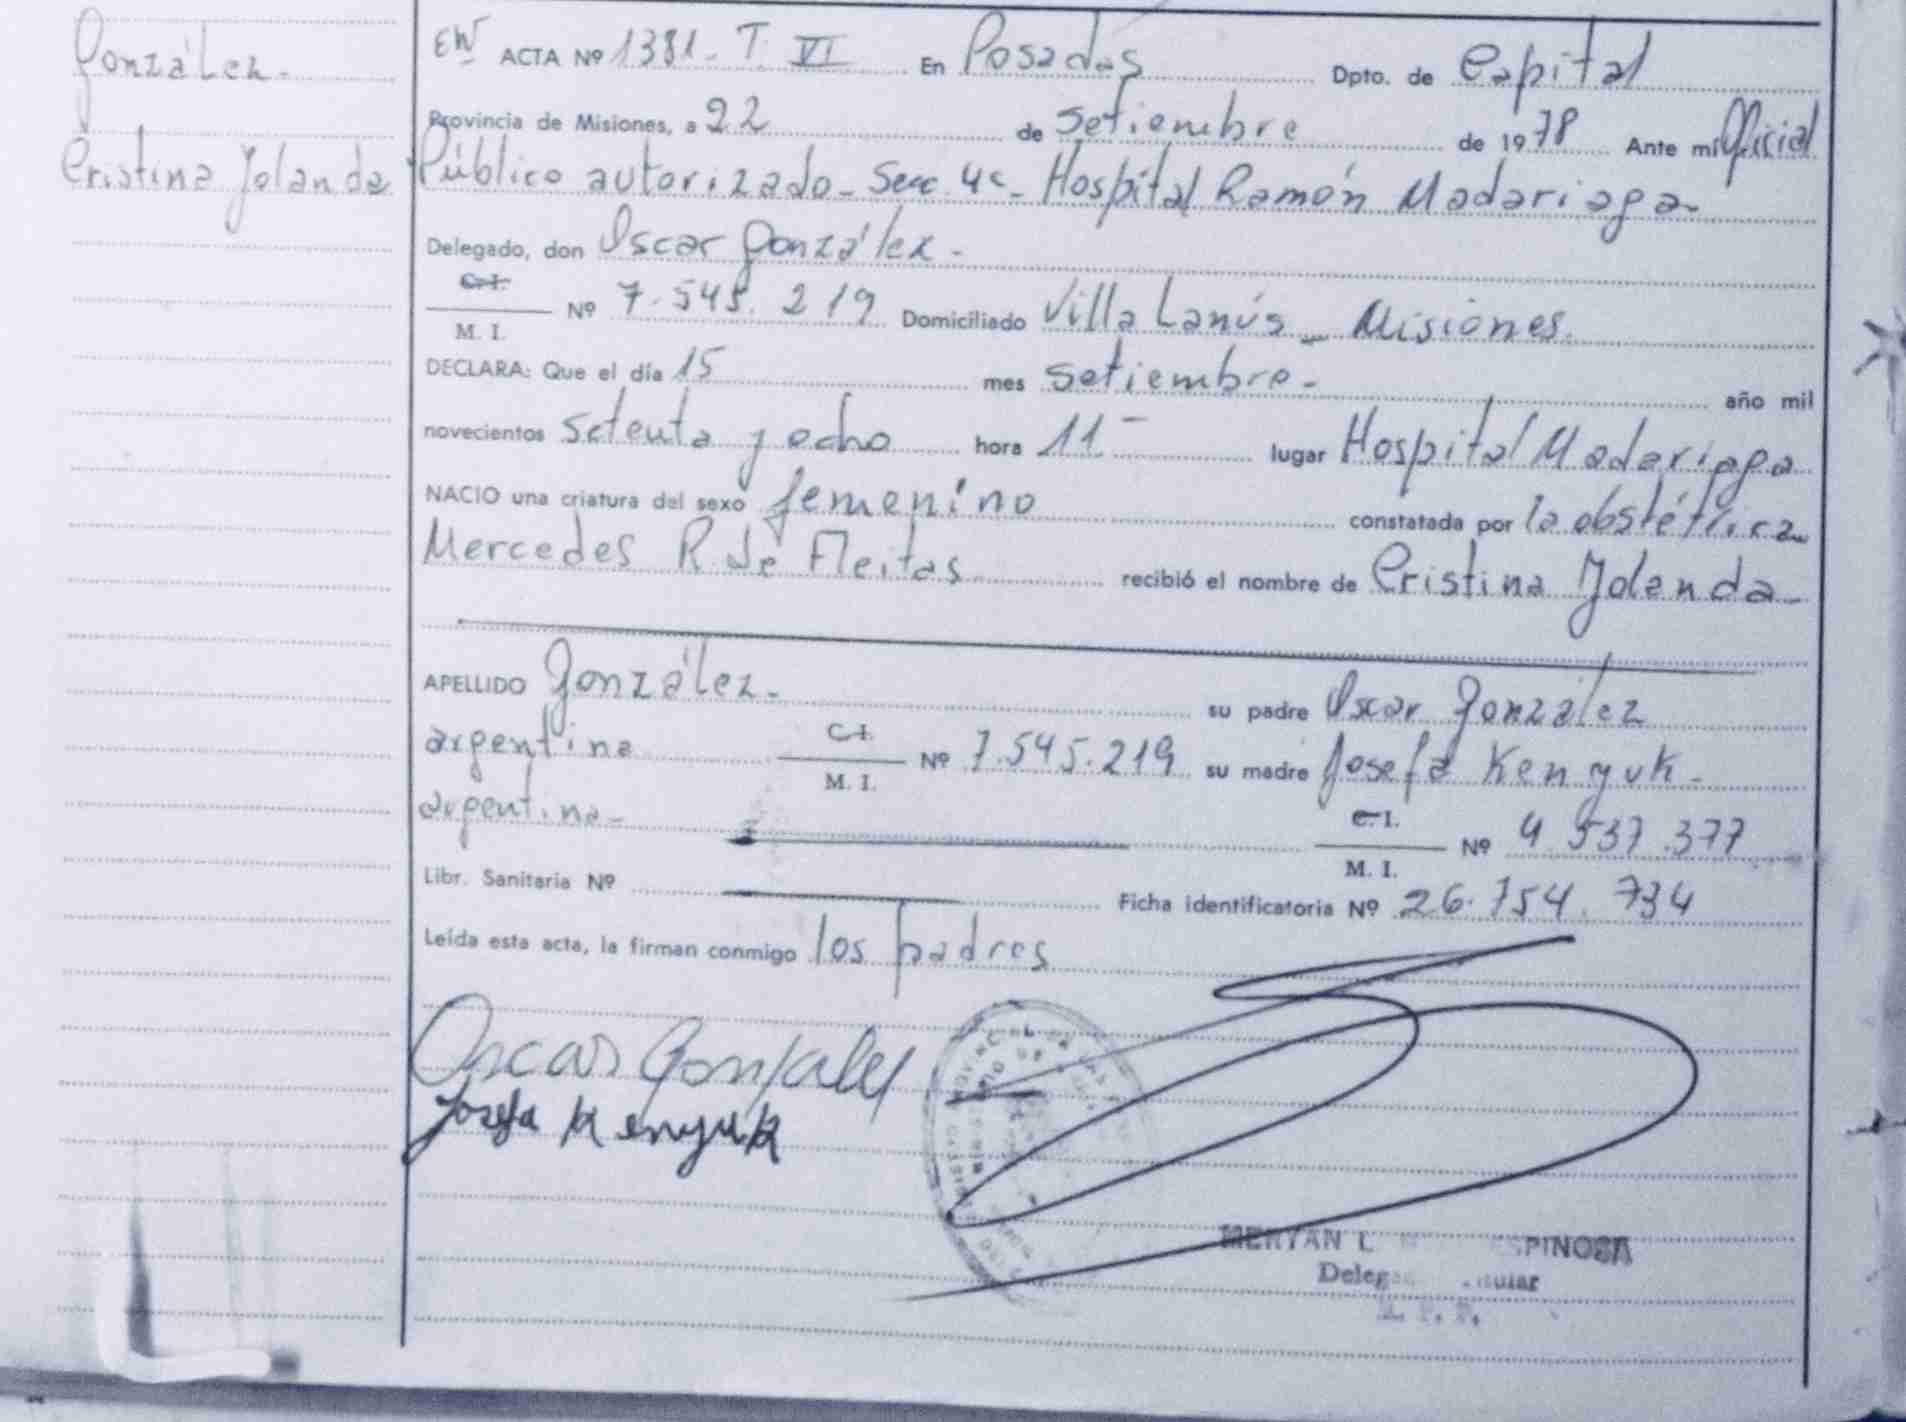 González.
Cristina Yolanda
ACTA Nº 1381 - T. VI En Posadas Dpto. de Capital
Provincia de Misiones, a 22 de Setiembre de 1978 Ante mí Oficial
Público autorizado - Sec. 4ª - Hospital Ramón Madariaga -
Delegado, don Oscar González -
C. I.
M. I. Nº 7.545.219 Domiciliado Villa Lanús - Misiones.
DECLARA: Que el día 15 mes Setiembre - año mil
novecientos setenta y ocho hora 11 - lugar Hospital Madariaga
NACIO una criatura del sexo femenino constatada por la obstétrica
Mercedes R. de Fleitas recibió el nombre de Cristina Yolanda -
APELLIDO González - su padre Oscar González
argentina C. I. M. I. Nº 7.545.219 su madre Josefa Kenyuk -
argentina - C. I. M. I. Nº 4.537.377
Libr. Sanitaria Nº Ficha identificatoria Nº 26.754.734
Leída esta acta, la firman conmigo los padres
Oscar Gonzalez
Josefa Kenyuk
ESPINOSA